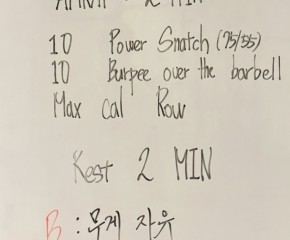 2 MIN
10 Power Snatch (75/55)
10 Burpee over the barbell
Max Cal Row
Rest 2 MIN
B : 무게 자유